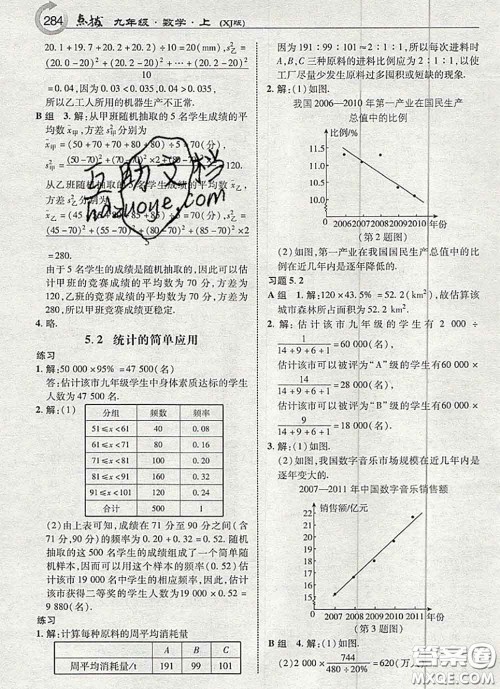 284 点拨 九年级·数学·上 (XJ版)
20.1+19.9+…+20 / 10 = 20, s²乙 =
0.04, 因为 0.03<0.035, 0.04>0.035,
所以乙工人所用的机器生产不正常.
B组 3. 解:从甲班随机抽取的 5 名学生成绩的平
从乙班随机抽取的 5 名学生成绩的平均数
=280.
由于 5 名学生的成绩是随机抽取的,因此估
计甲班的竞赛成绩的平均数为 70 分,方差为
120,乙班的竞赛成绩的平均数为 70 分,方差
为280.所以甲班的竞赛成绩更稳定.
4. 略.
5.2 统计的简单应用
练习
1. 解:50 000×95%=47 500(名)
答:估计该市九年级学生中身体素质达标的学生
人数为 47 500 名.
2. 解:(1)
分组 频数 频率
51≤x<61 40 0.08
61≤x<71 80 0.16
71≤x<81 100 0.20
81≤x<91 160 0.32
91≤x<101 120 0.24
合计 500 1.00
(2)由上表可知,成绩在 71 分至 90 分之间(含
71分,90分)的频率为 0.20+0.32=0.52. 随机
抽取的这 500 名学生成绩组成了一个简单随机
样本,因而可以用这个样本的频率(即 0.52)估计
该市 19 000 名中学生的相应频率,因此我们估
计该市获得二等奖的学生人数为 19 000×0.52=
9 880(名)
练习
1. 解:计算每种原料的周平均消耗量
A B C
周平均消耗量/t 191 99 101
因为 191∶99∶101≈2∶1∶1,所以每次进料时
A,B,C 三种原料的进料比例应为 2∶1∶1,以使
工厂尽量少发生原料过多囤积或短缺的现象.
2. 解:(1)如图.
我国 2006—2010 年第一产业在国民生产
总值中的比例
比例/%
11.5
11.0
10.5
10.0
0 2006 2007 2008 2009 2010 年份
(第 2 题图)
(2)如图,第一产业在我国国民生产总值中的比
例在近几年内是逐年降低的.
习题 5.2
A组 1. 解:120×43.5%=52.2(km²),故估算该
城市森林所占面积为 52.2 km².
2. 解:估计该市九年级的学生有 2 000÷
1/(14+9+6+1)=60 000(名)
估计该市可以被评为“A”级的学生有60 000×
14/(14+9+6+1)=28 000(名)
估计该市可以被评为“B”级的学生有60 000×
9/(14+9+6+1)=18 000(名)
3. 解:(1)如图.
(2)如图,我国数字音乐市场规模在近几年内是
逐年变大的.
2007—2011 年中国数字音乐销售额
销售额/亿元
22
21
20
19
18
17
16
15
0 2007 2008 2009 2010 2011 年份
(第 3 题图)
B组 4. 解:(1)如图.
(2)2 000×744/(480÷20%)=620(万人)
互助文档
hazuoye.com
答案圈
MXQE.COM